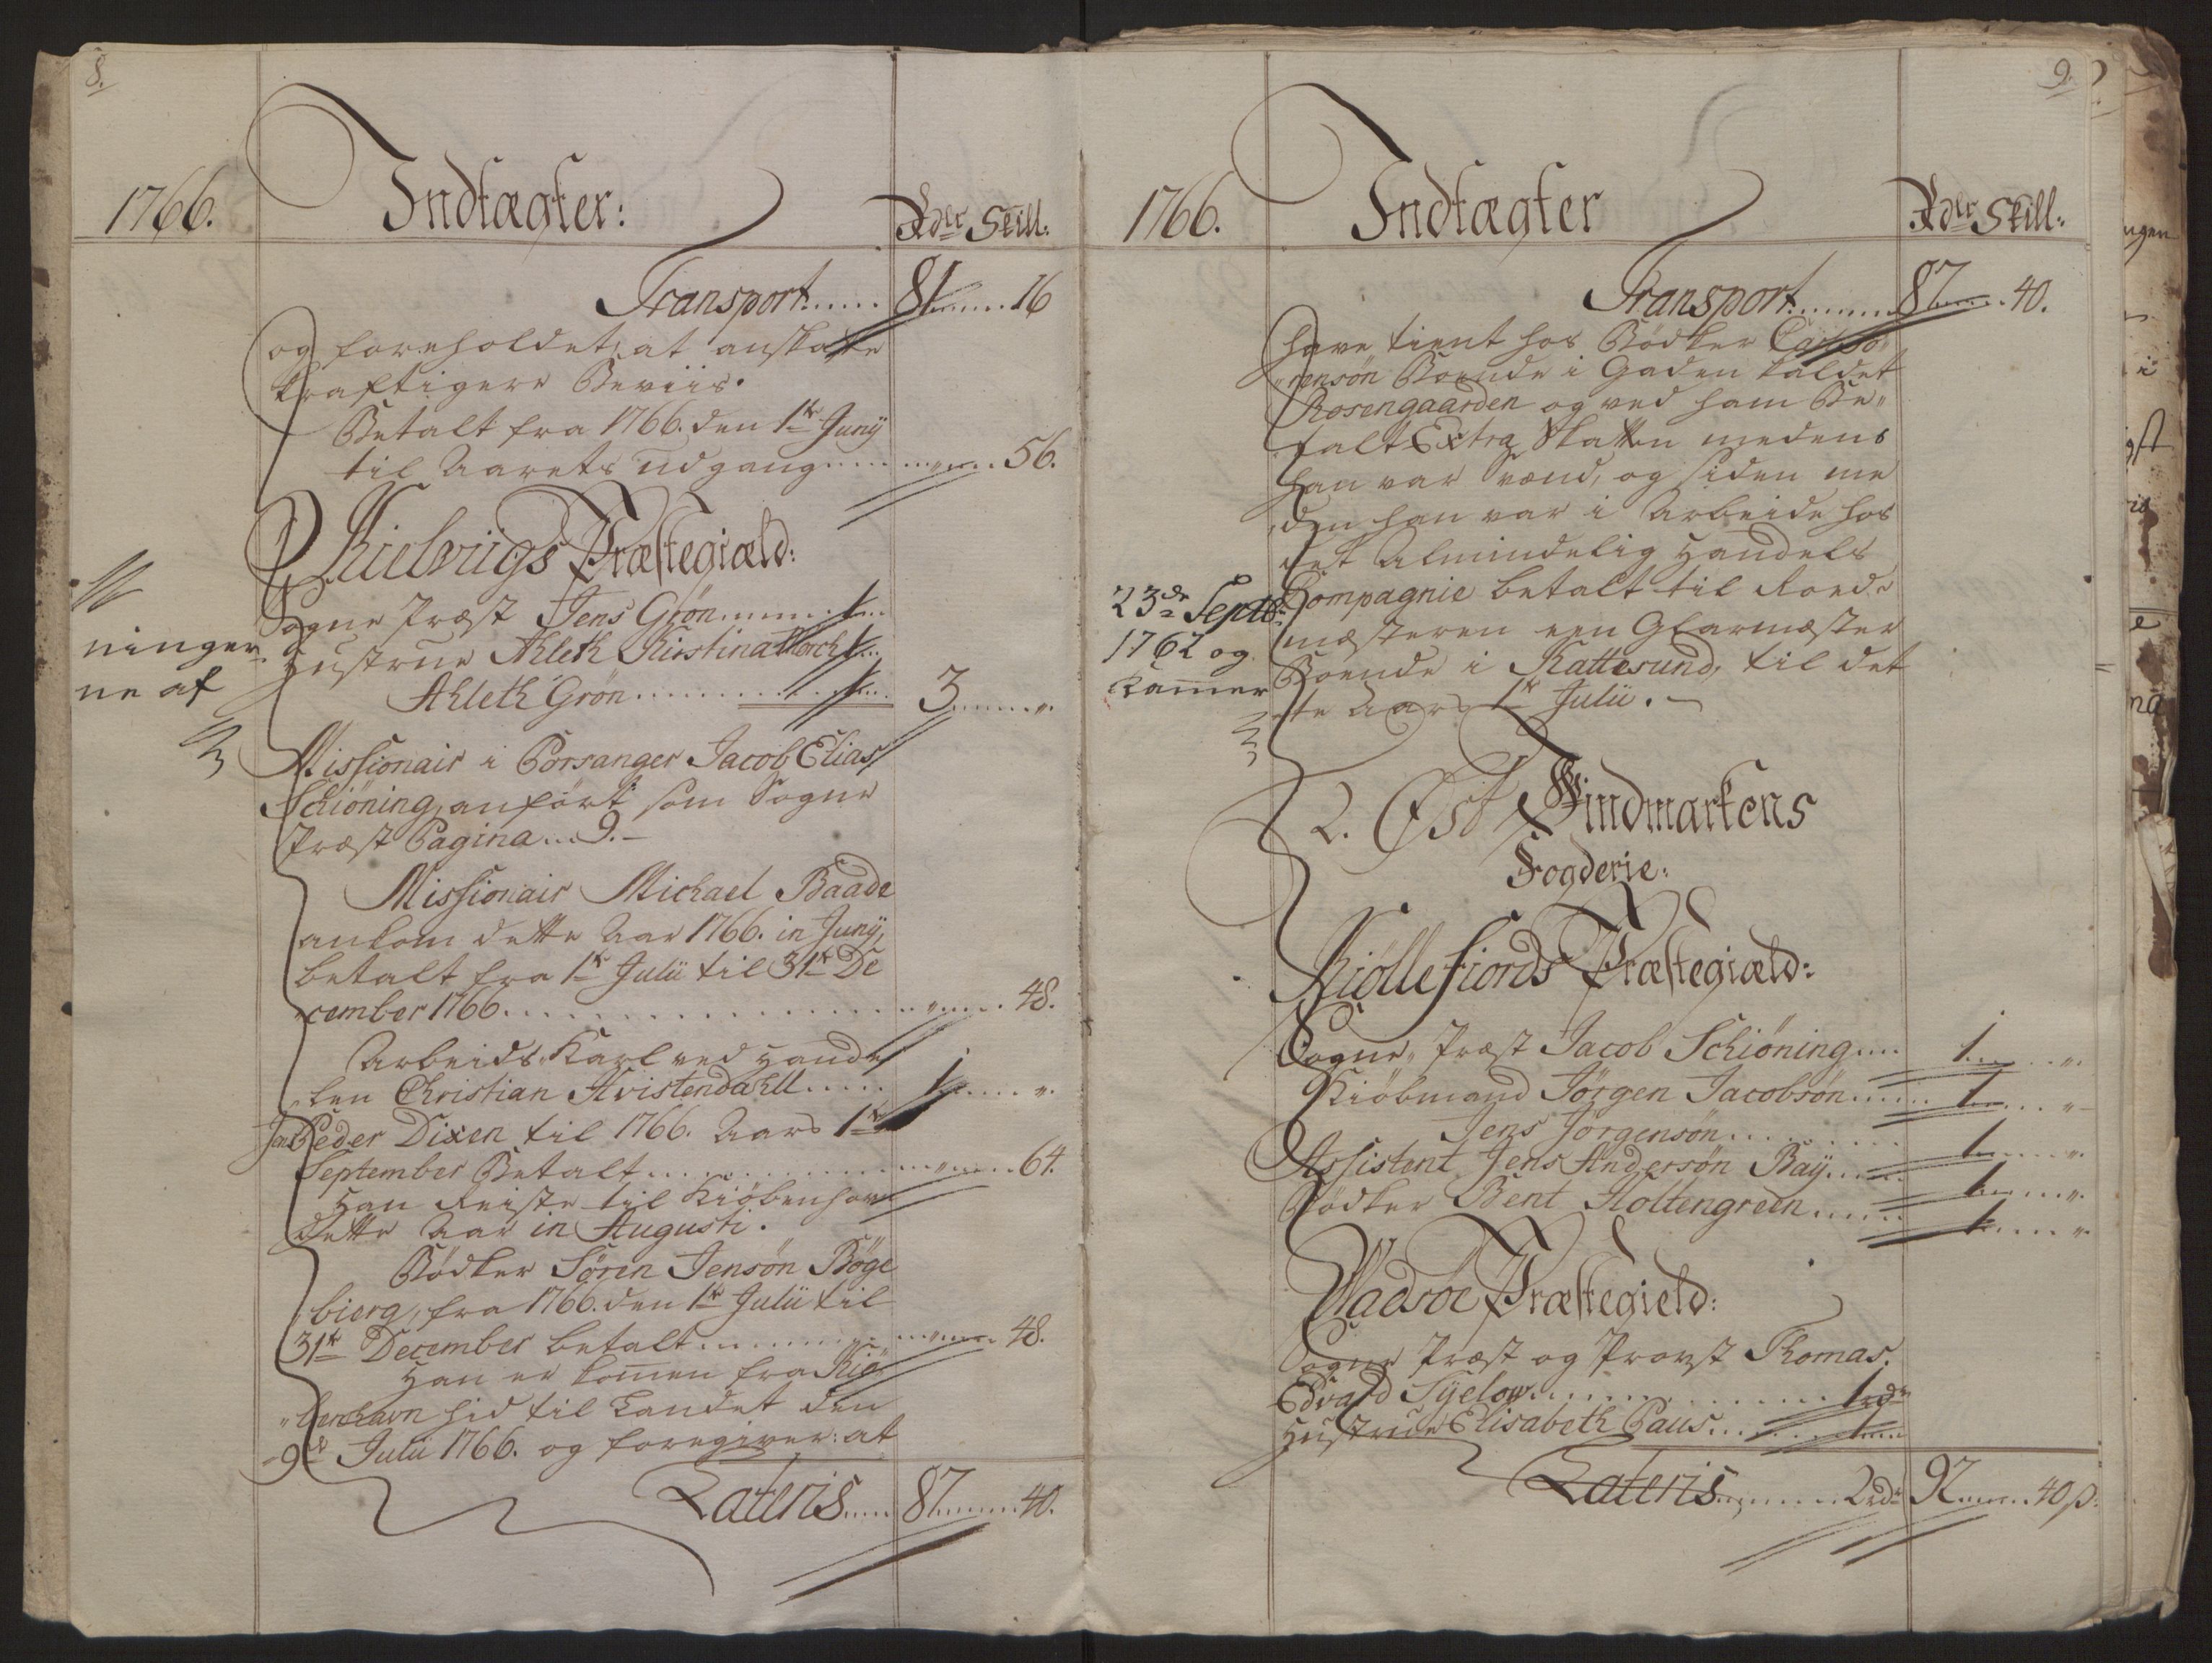 8.
1766.
Indtægter:
Rdlr Skill:
Transport..... 81....... 16
og foreholdet, at anskaffe
kraftigere Beviis.
Betalt fra 1766. den 1te Junÿ
til Aarets udgang..... ..„.... 56.
Kielviigs Præstegiæld:
Sogne Præst Jens Grön........ 1....
Hustrue Ahleth Kirstina 1...
Ahleth Grön............. 1.... 3......„.
ninger
ne af
Missionair i Porsanger Jacob Elias
Schiöning, anfört som Sogne
Præst Pagina...9.-
Missionair Michael Baade
ankom dette Aar 1766. in Junÿ,
betalt fra 1te Julii til 31te De
„cember 1766................. ..„.... 48.
Arbeids Karl ved Hande
„len Christian Hvistendahll..... 1......„.
Peder Dixen til 1766. Aars 1te
September Betalt............. ...„.... 64.
Han Reiste til Kiöbenhavn
dette Aar in Augusti.
Bödker Sören Jensön Böge
bierg, fra 1766. den 1te Julii til
31te December betalt......... ...„.... 48.
Han er kommen fra Kiö
„benhavn hid til Landet den
9de Julii 1766. og foregiver: at
Lateris.... 87....... 40.
9.
1766.
Indtægter
Rdlr Skill:
Transport........ 87...... 40.
have tient hos Bödker
„rensön Boende i Gaden kaldet
Rosengaarden og ved ham Be„
talt Extra Skatten medens
han var Svend, og siden me
„den han var i Arbeide hos
det Almindelig Handels
Compagnie betalt til Rode
mæsteren een Glarmæster
Boende i Kattesund, til det
te Aars 1te Julii.-
23de Septb:
1762 og
Kammer
2. Øst Findmarkens
Fogderie:
Kiöllefiords Præstegiæld:
Sogne„ Præst Jacob Schiöning.... 1......„.
Kiöbmand Jörgen Jacobsön...... 1.....„
Jens Jörgensön.......... 1......„.
Assistent Jens Andersön Baÿ...... 1.....„.
Bödker Bent Holtengreen...... 1.....„.
Wadsöe Præstegield:
Sogne Præst og Provst Thomas
Edvard Sÿelow................ 1rdr
Hustrue Elisabeth Paus........ 1....
Lateris......... 2rdr 92...... 40ß.